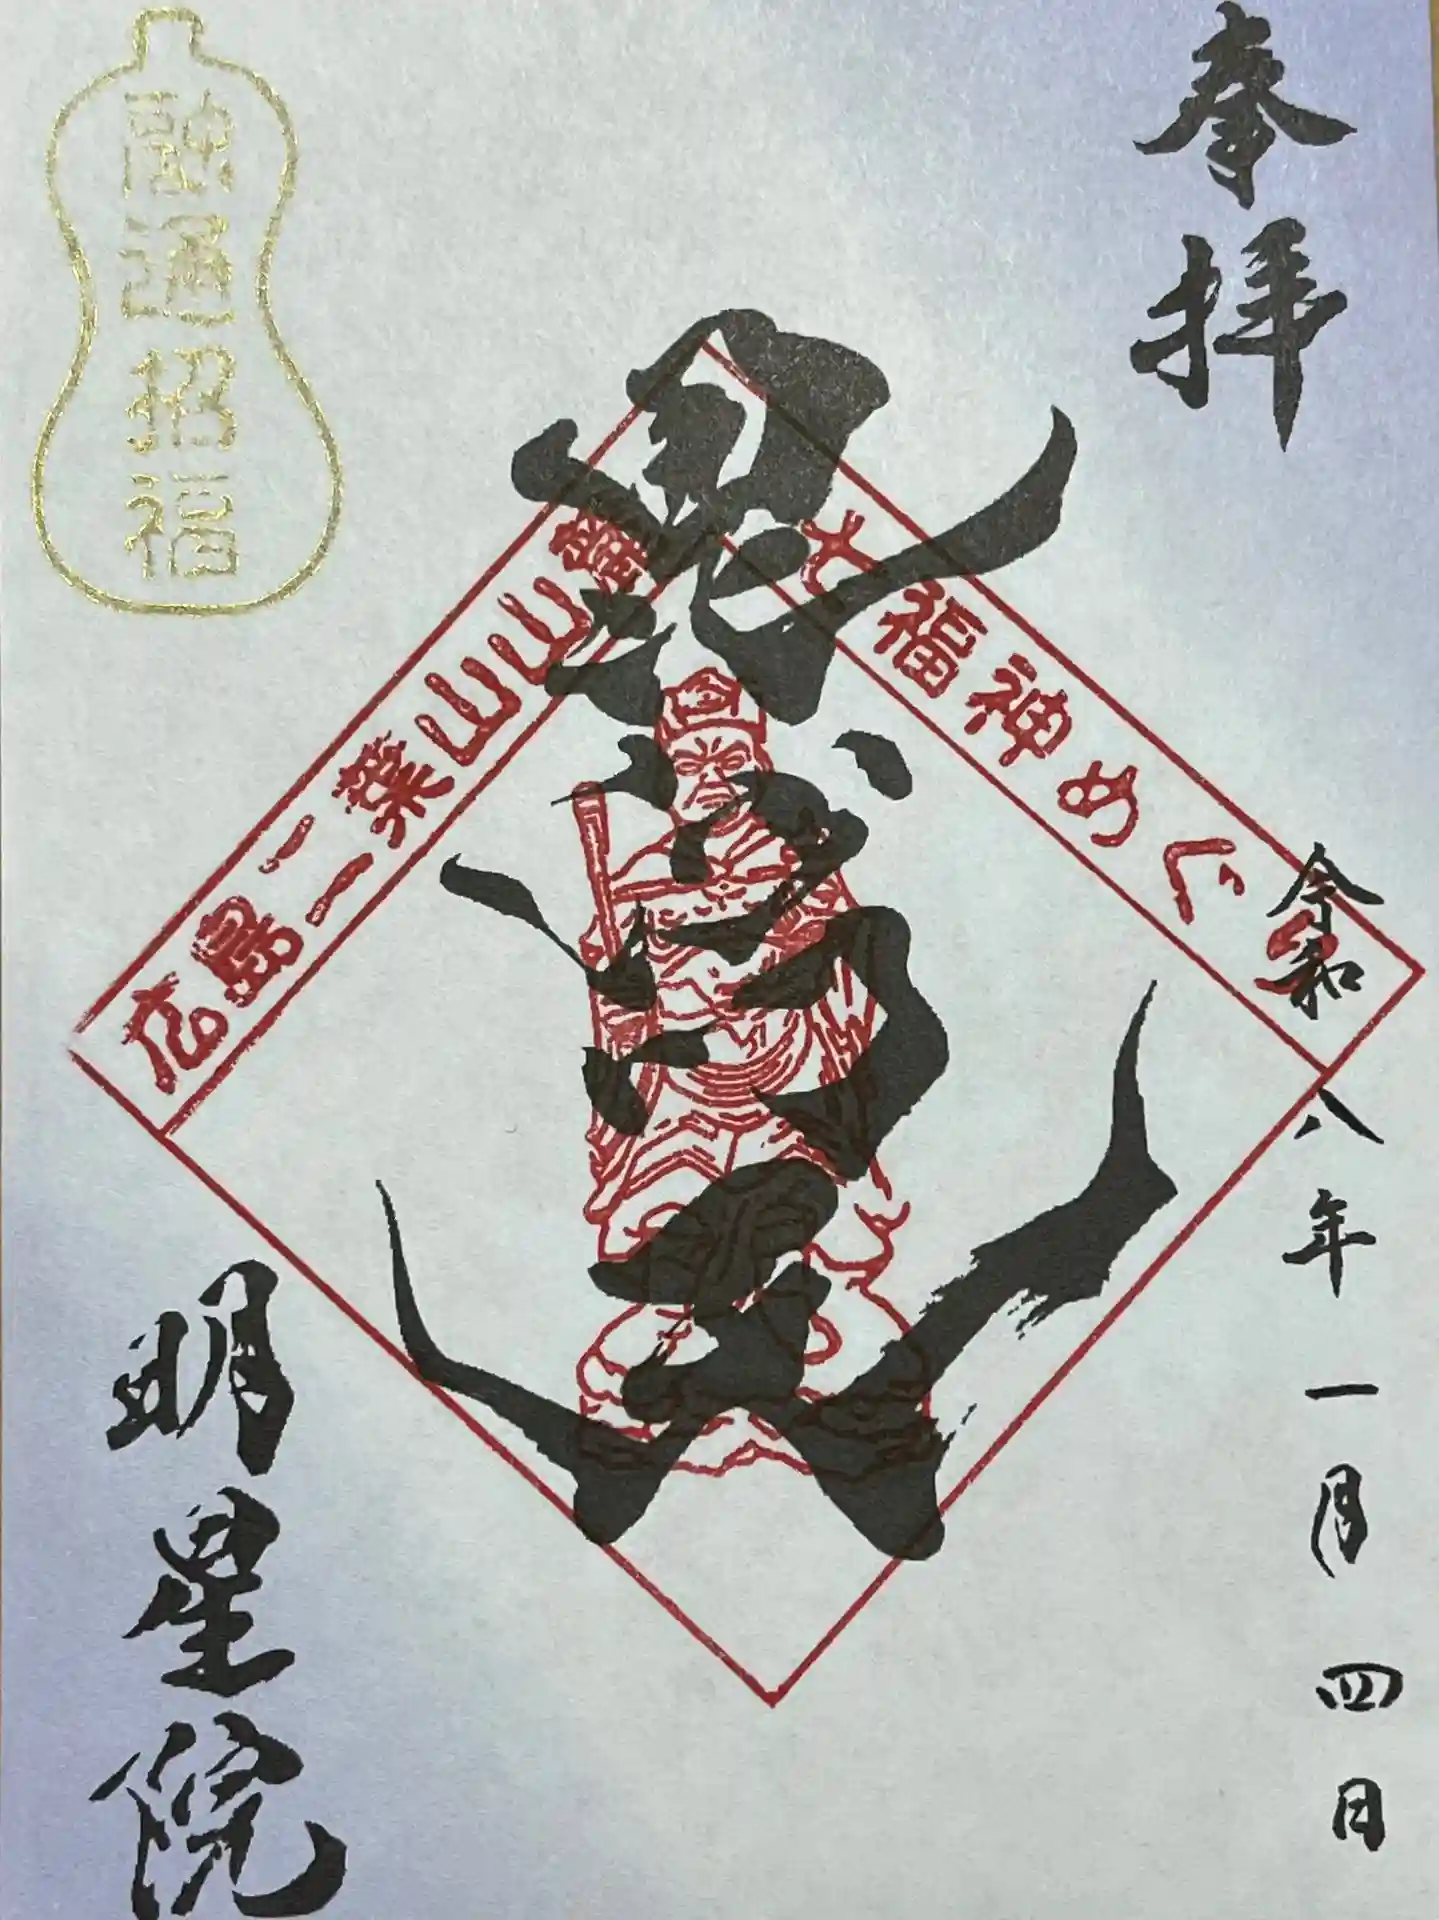 奉拝
七福神めぐり
令和八年一月四日
毘沙門天
広島二葉山山麓
融通招福
明星院